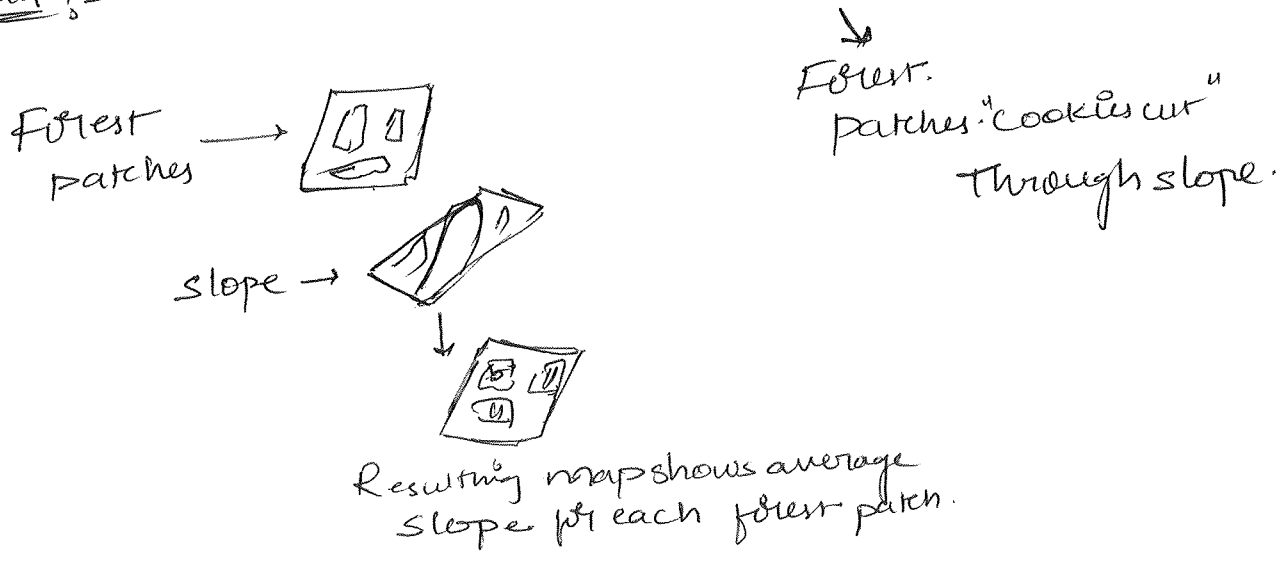 Forest
patches
slope
Resulting map shows average
slope for each forest patch.
Forest.
patches "cookies cut"
Through slope.